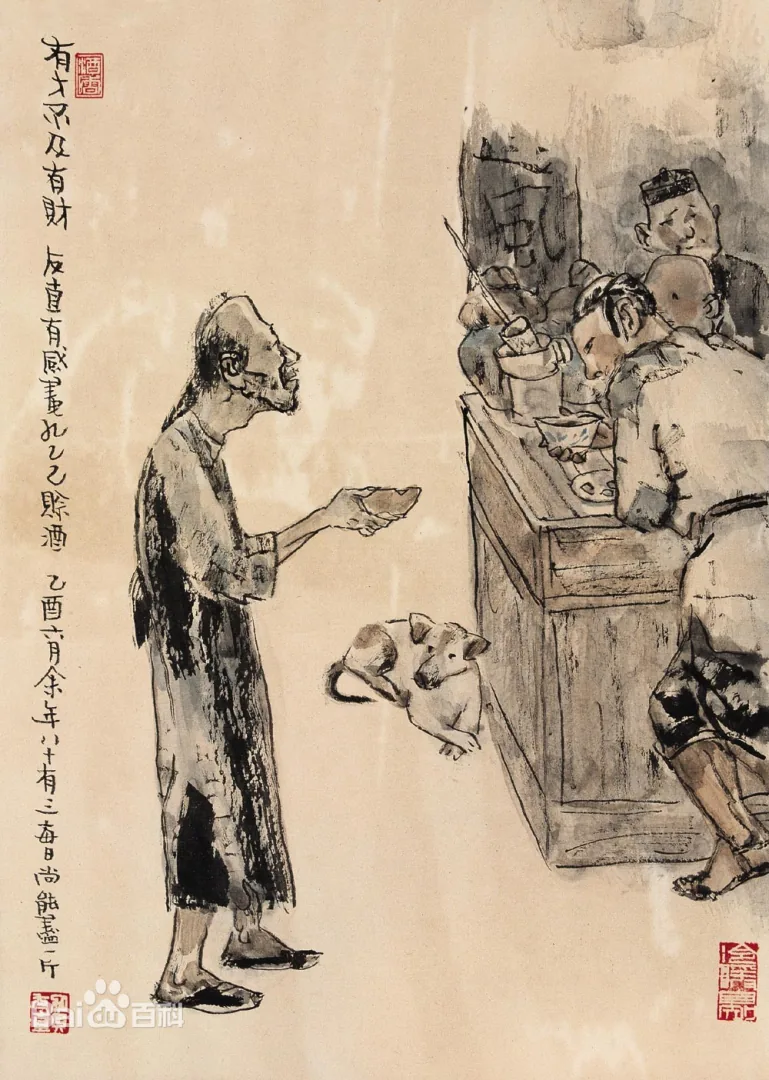 有才不及有財 友直有感畫孔乙己賒酒 乙酉六月余年八十有三每日尚能盡一斤
風
Baidu百科